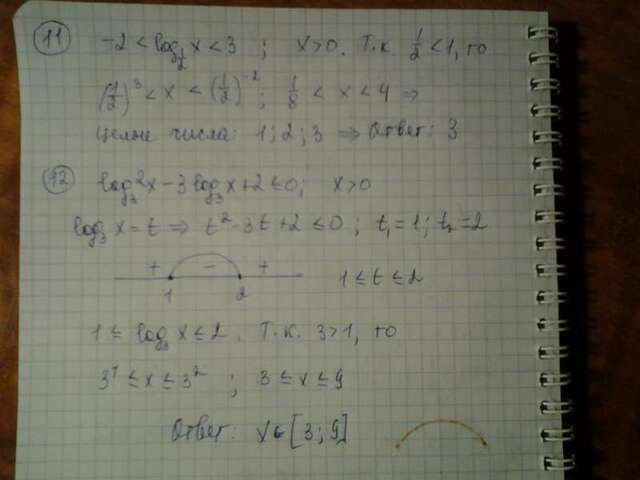 11 -2 < log_{1/2} x < 3 ; x>0. Т.к 1/2 < 1, то
(1/2)^3 < x < (1/2)^{-2} ; 1/8 < x < 4 ⇒
Целые числа: 1; 2; 3 ⇒ Ответ: 3
12 log_3^2 x - 3 log_3 x + 2 ≤ 0; x>0
log_3 x = t ⇒ t^2 - 3t + 2 ≤ 0 ; t_1 = 1; t_2 = 2
+ - +
1 2 1 ≤ t ≤ 2
1 ≤ log_3 x ≤ 2. Т.к. 3>1, то
3^1 ≤ x ≤ 3^2 ; 3 ≤ x ≤ 9
Ответ: x ∈ [3; 9]